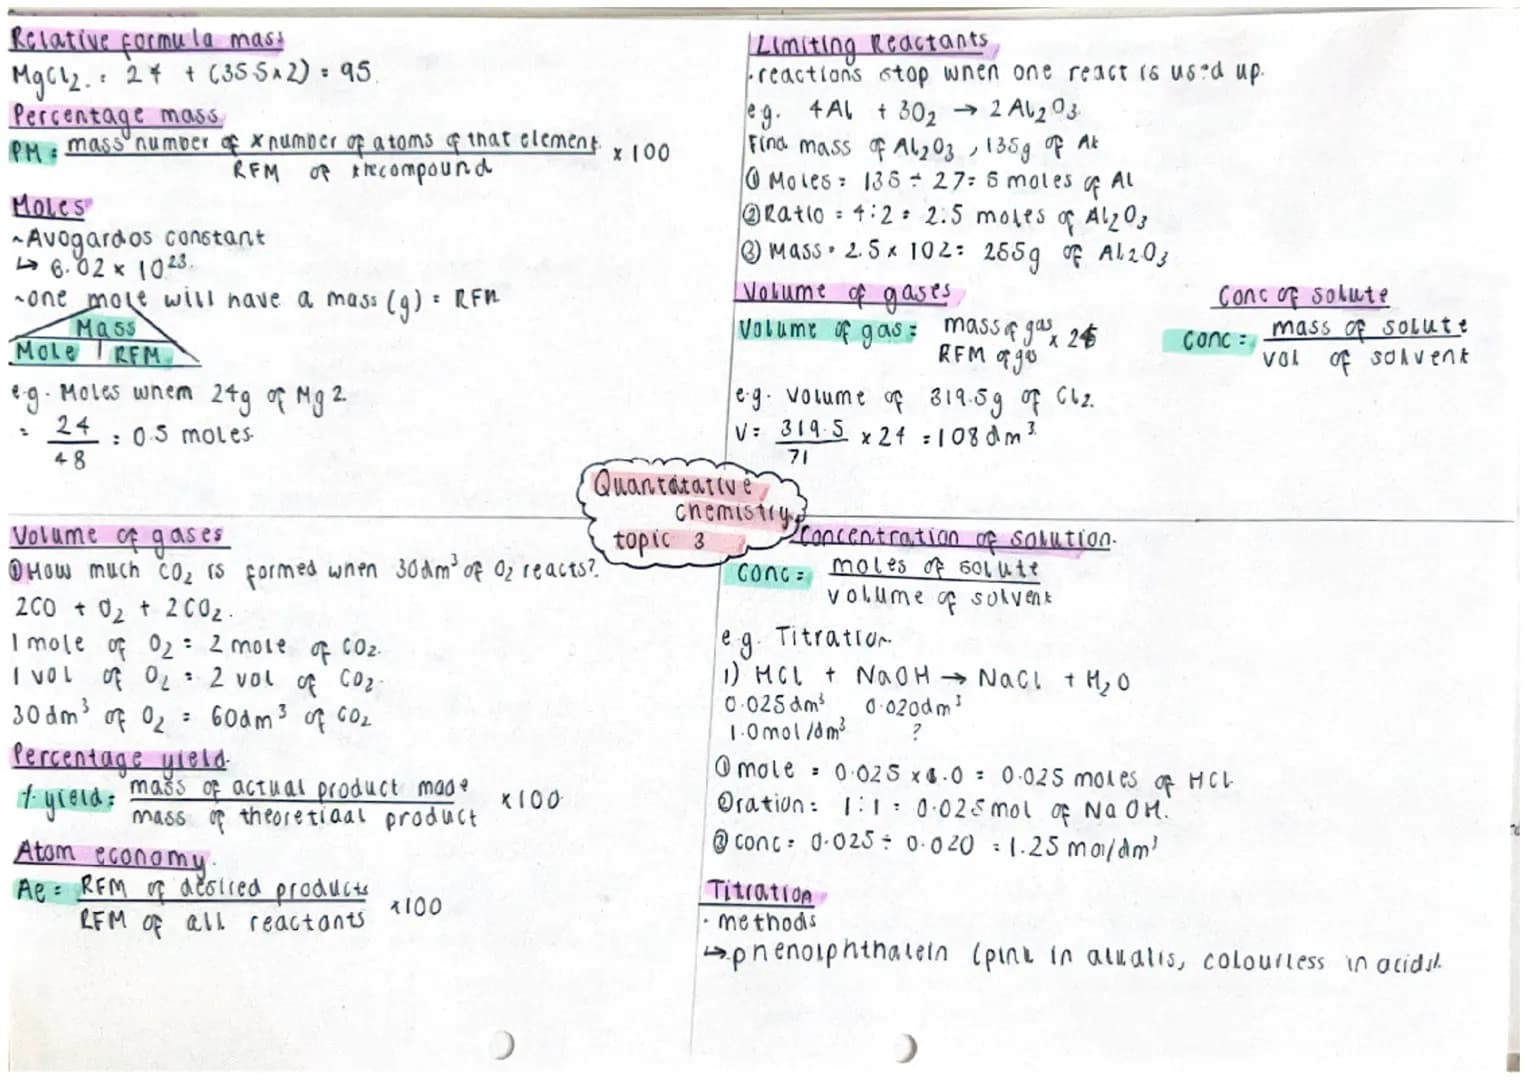 Relative formula mass
MgCl2 : 24 + (35.5x2) = 95.
Percentage mass
PM = mass number of x number of atoms of that element x 100
RFM of the compound
Moles
~Avogardos constant
↳ 6.02 x 10^23.
~one mole will have a mass (g) = RFM
Mass
Mole | RFM
e.g. Moles whem 24g of Mg 2
= 24 = 0.5 moles
48
Limiting Reactants
·reactions stop when one react is used up.
eg. 4Al + 3O2 → 2Al2O3
Find mass of Al2O3, 135g of Al
① Moles = 135 ÷ 27 = 5 moles of Al
② Ratio = 4:2 = 2.5 moles of Al2O3
③ Mass = 2.5 x 102 = 255g of Al2O3
Volume of gases
Volume of gas = mass of gas x 24
RFM of gas
e.g. volume of 319.5g of Cl2.
V = 319.5 x 24 = 108dm^3
71
Conc of solute
Conc = mass of solute
vol of solvent
Quantatative
chemistry
topic 3
Volume of gases
① How much CO2 is formed when 30dm^3 of O2 reacts?
2CO + O2 + 2CO2.
1 mole of O2 = 2 mole of CO2
1 vol of O2 = 2 vol of CO2
30dm^3 of O2 = 60dm^3 of CO2
Percentage yield
% yield = mass of actual product made x100
mass of theoretiaal product
Atom economy.
Ae = RFM of desired products x100
RFM of all reactants
Concentration of solution.
Conc = moles of solute
volume of solvent
e.g. Titration
1) HCl + NaOH → NaCl + H2O
0.025dm^3 0.020dm^3
1.0mol/dm^3 ?
① mole = 0.025 x 1.0 = 0.025 moles of HCl
② ration: 1:1 = 0.025mol of NaOH.
③ conc = 0.025 ÷ 0.020 = 1.25 mol/dm^3
Titration
· methods
↳ phenolphthalein (pink in alkalis, colourless in acids).